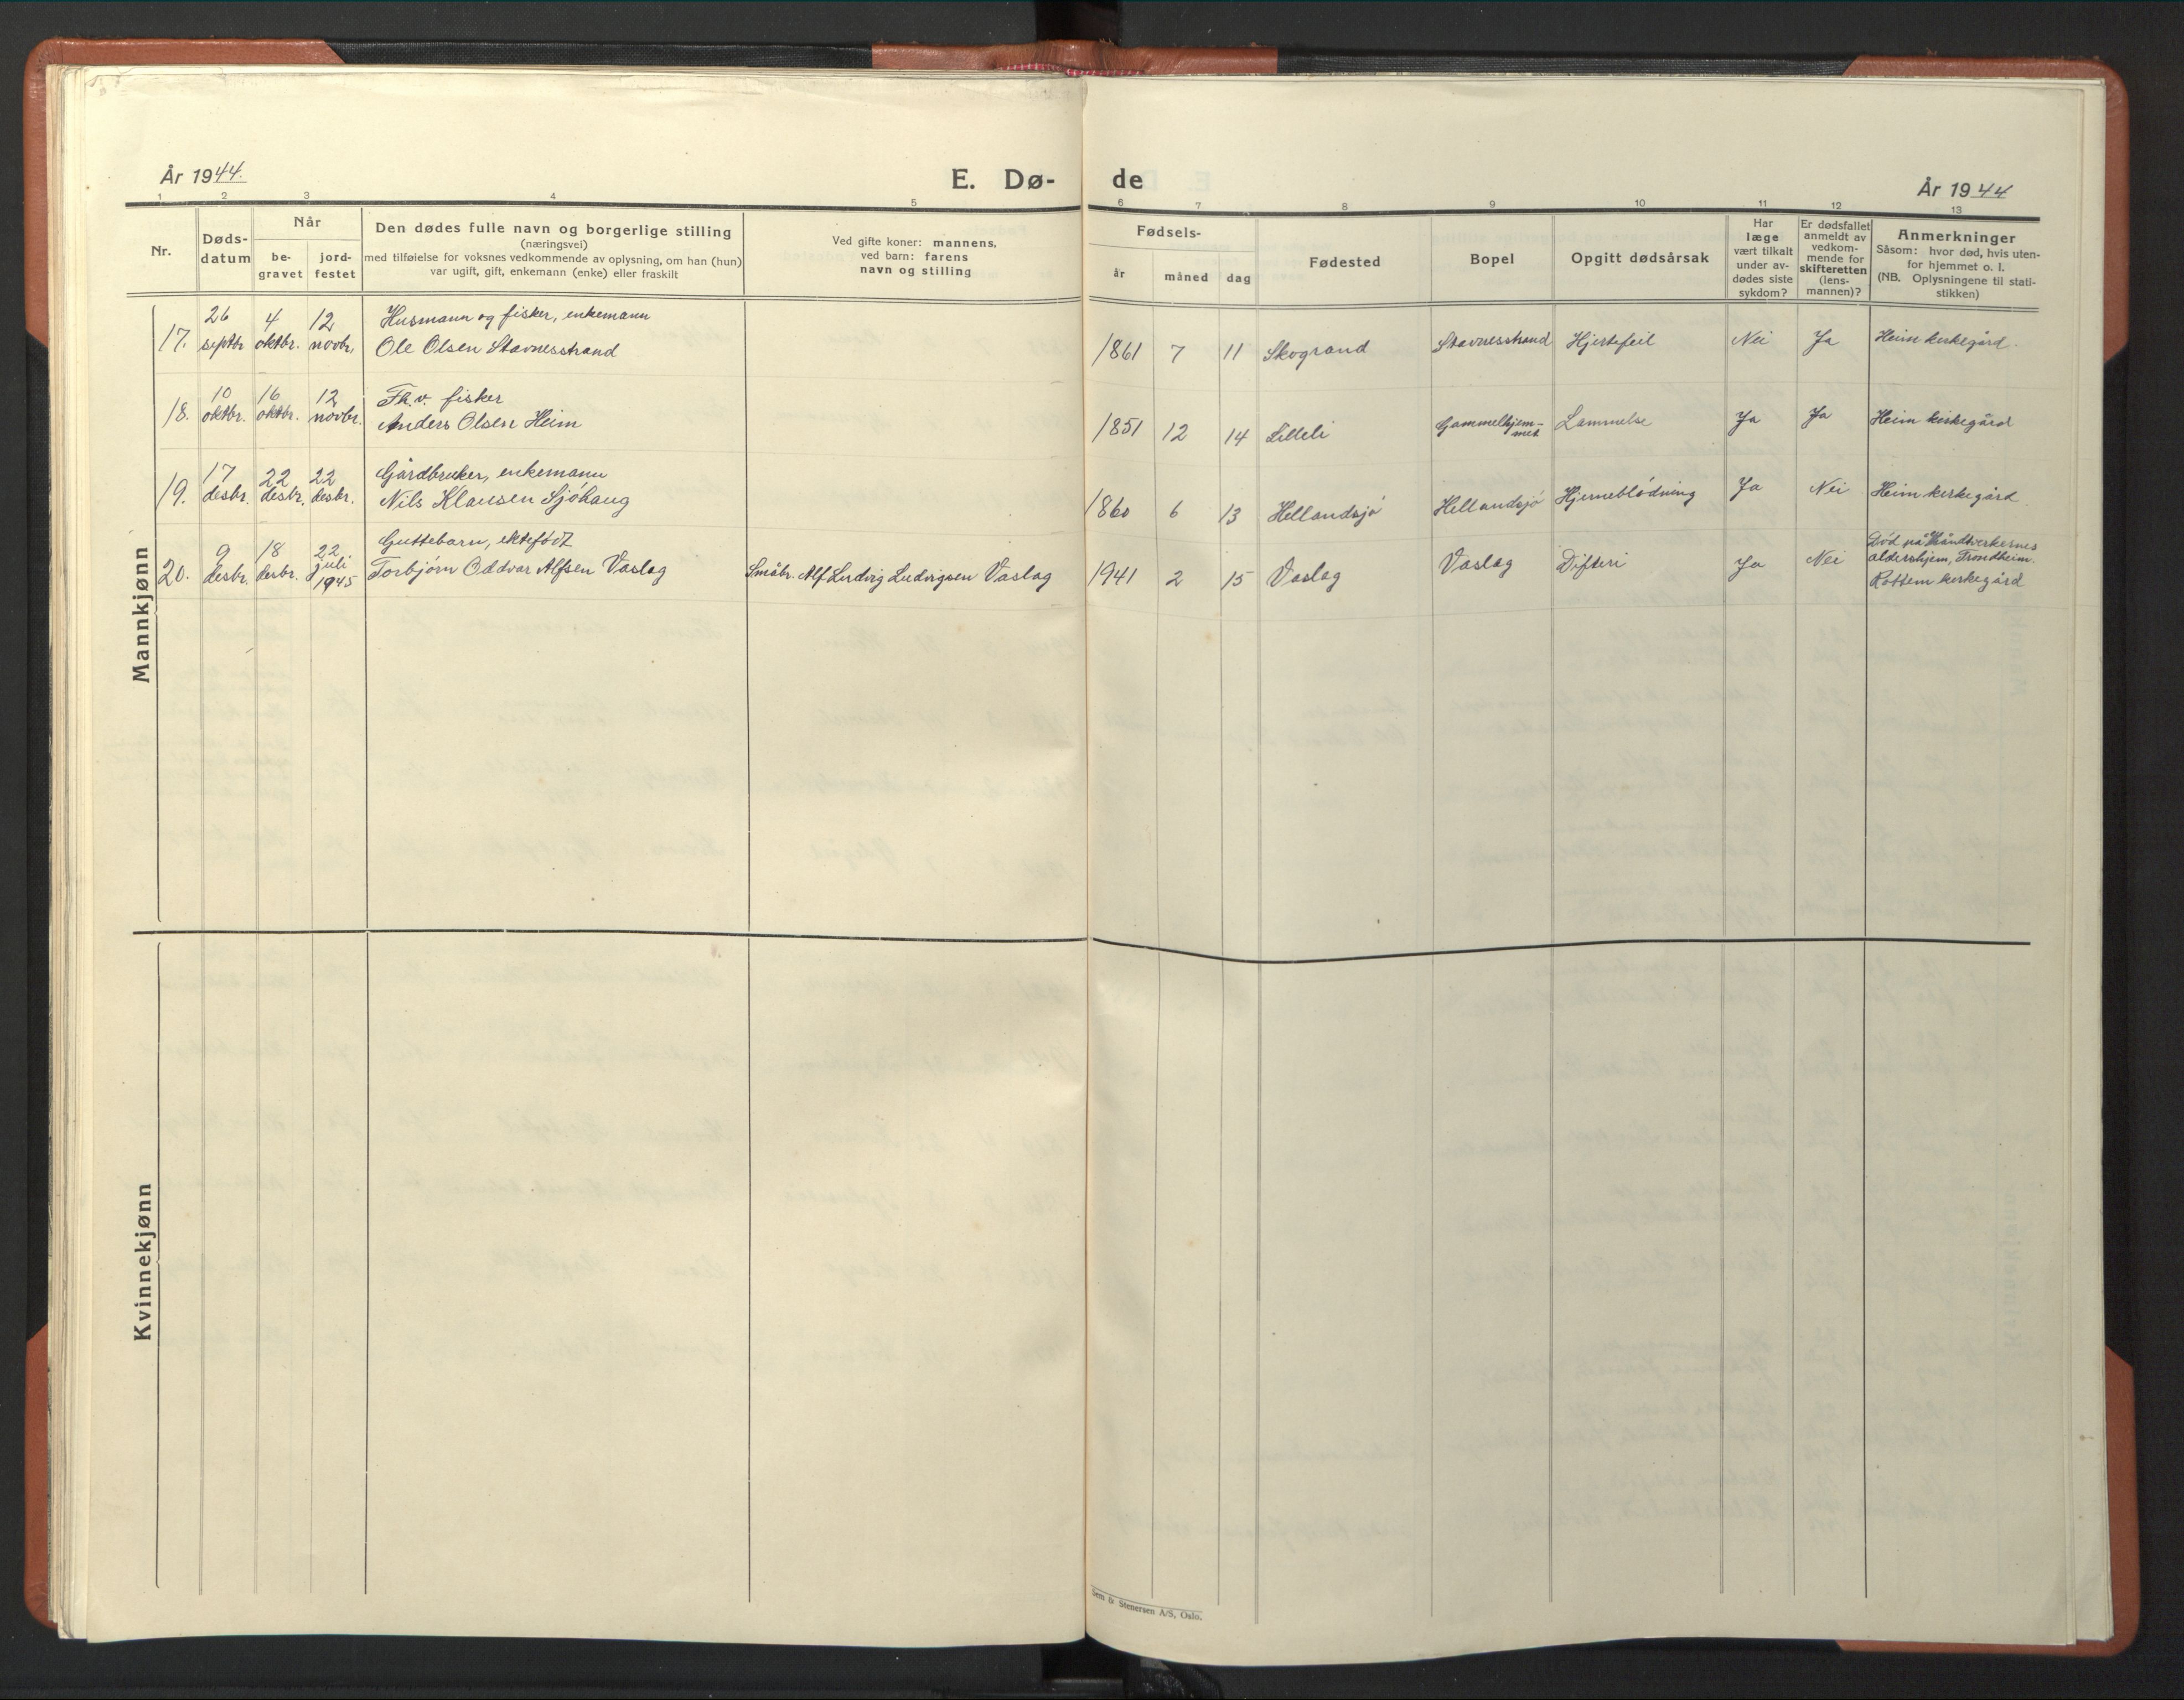 År 1944.
E. Dø-
de
År 1944
1 2 3 4 5 6 7 8 9 10 11 12 13
Nr.
Døds-
datum
Når
be-
gravet
jord-
festet
Den dødes fulle navn og borgerlige stilling
(næringsvei)
med tilføielse for voksnes vedkommende av oplysning, om han (hun)
var ugift, gift, enkemann (enke) eller fraskilt
Ved gifte koner: mannens,
ved barn: farens
navn og stilling
Fødsels-
år
måned
dag
Fødested
Bopel
Opgitt dødsårsak
Har
læge
vært tilkalt
under av-
dødes siste
sykdom?
Er dødsfallet
anmeldt av
vedkom-
mende for
skifteretten
(lens-
mannen)?
Anmerkninger
Såsom: hvor død, hvis uten-
for hjemmet o. l.
(NB. Oplysningene til stati-
stikken)
Mannkjønn
26 4 12 Husmann og fisker, enkemann
17. septbr. oktbr. novbr. Ole Olsen Stavnesstrand 1861 7 11 Skogrand Stavnesstrand Hjertefeil Nei Ja Heim kirkegård.
10 16 12 Fh.v. fisker
18. oktbr. oktbr. novbr. Anders Olsen Heim 1851 12 14 Lilleli Gammelhjem-
met Lammelse Ja Ja Heim kirkegård
17 22 22 Gårdbruker, enkemann
19. desbr. desbr. desbr. Nils Klausen Sjøhaug 1860 6 13 Hellandsjø Hellandsjø Hjerneblødning Ja Nei Heim kirkegård
9 18 22 Guttebarn, ektefødt
20. desbr. desbr. juli
1945 Torbjørn Oddvar Alfsen Vaslag Småbr. Alf Ludvig Ludvigsen Vaslag 1941 2 15 Vaslag Vaslag Difteri Ja Nei Død på Håndtverkernes
aldershjem, Trondheim.
Rottem kirkegård
Kvinnekjønn
Sem & Stenersen A/S, Oslo.